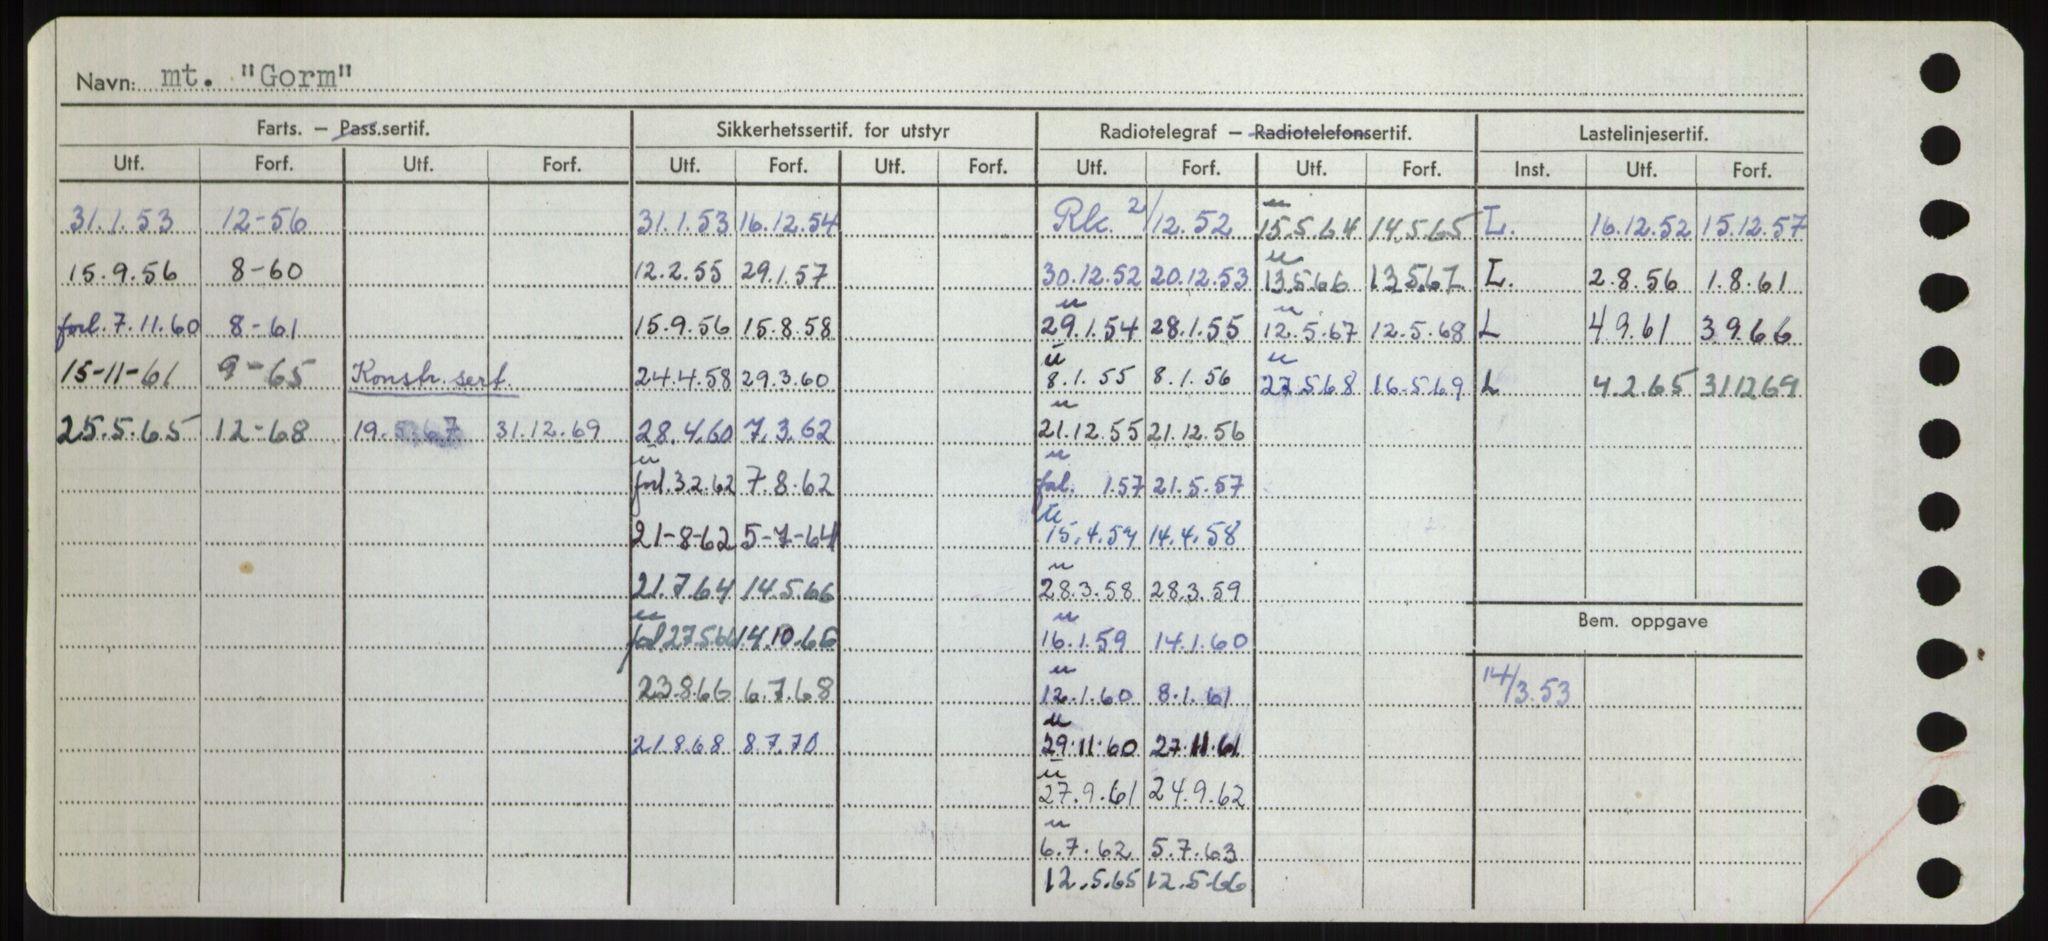 Navn: mt. "Gorm"
Farts. – Pass.sertif. Sikkerhetssertif. for utstyr Radiotelegraf – Radiotelefonsertif. Lastelinjesertif.
Utf. Forf. Utf. Forf. Utf. Forf. Utf. Forf. Utf. Forf. Utf. Forf. Inst. Utf. Forf.
31.1.53 12-56 31.1.53 16.12.54 Rk. 2/12.52 15.5.64 14.5.65 L. 16.12.52 15.12.57
15.9.56 8-60 12.2.55 29.1.57 30.12.52 20.12.53 13.5.66 13.5.67 L. 2.8.56 1.8.61
forl. 7.11.60 8-61 15.9.56 15.8.58 29.1.54 28.1.55 12.5.67 12.5.68 L 4.9.61 3.9.66
15-11-61 9-65 Konstr. sert. 24.4.58 29.3.60 8.1.55 8.1.56 27.5.68 16.5.69 L 4.2.65 31.12.69
25.5.65 12-68 19.5.67 31.12.69 28.4.60 7.3.62 21.12.55 21.12.56
forl. 3.2.62 7.8.62 1.57 21.5.57
21-8-62 5-7-64 15.4.57 14.4.58
21.7.64 14.5.66 28.3.58 28.3.59
27.5.66 14.10.66 16.1.59 14.1.60
23.8.66 6.7.68 12.1.60 8.1.61
21.8.68 8.7.70 29.11.60 27.11.61
27.9.61 24.9.62
6.7.62 5.7.63
12.5.65 12.5.66
Bem. oppgave
14/3.53